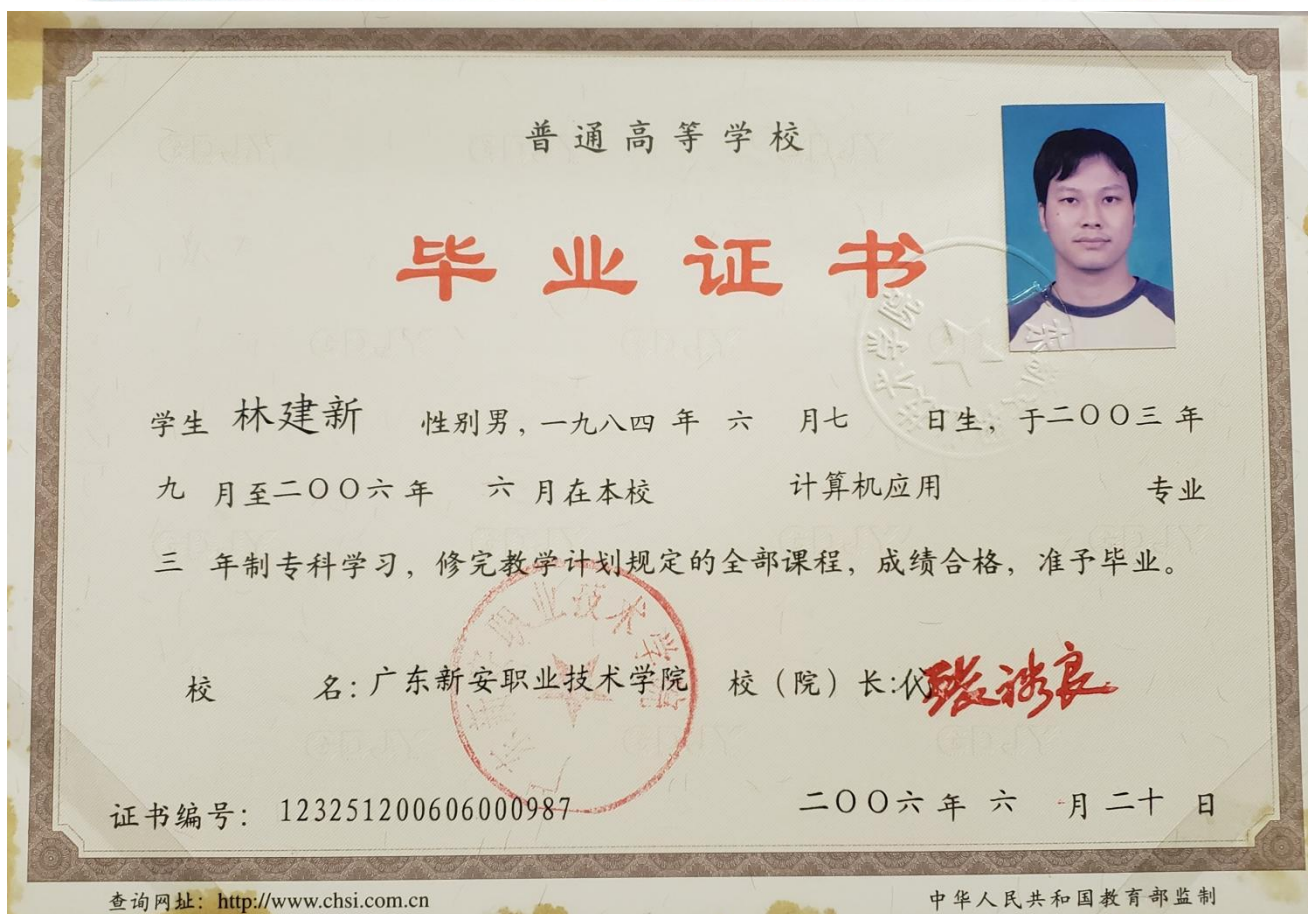 普通高等学校
毕业证书
学生 林建新 性别男，一九八四 年 六 月七 日生，于二〇〇三 年
九 月至二〇〇六 年 六 月在本校 计算机应用 专业
三 年制专科学习，修完教学计划规定的全部课程，成绩合格，准予毕业。
校 名：广东新安职业技术学院 校（院）长：代
证书编号： 123251200606000987 二〇〇六 年 六 月 二十 日
查询网址：http://www.chsi.com.cn 中华人民共和国教育部监制